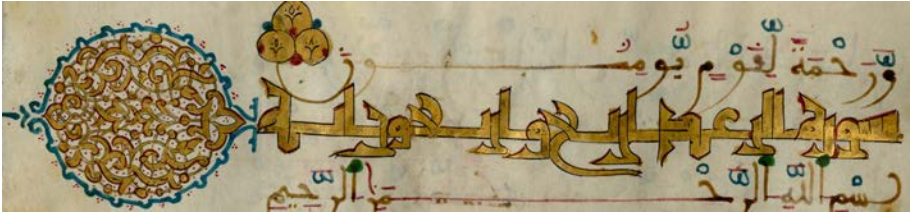 وَرَحْمَةً لِّقَوْمٍ يُّومِنُونَ
سورة الرعد اربع واربعون اية
بِسْمِ اللَّهِ الرَّحْمَنِ الرَّحِيمِ